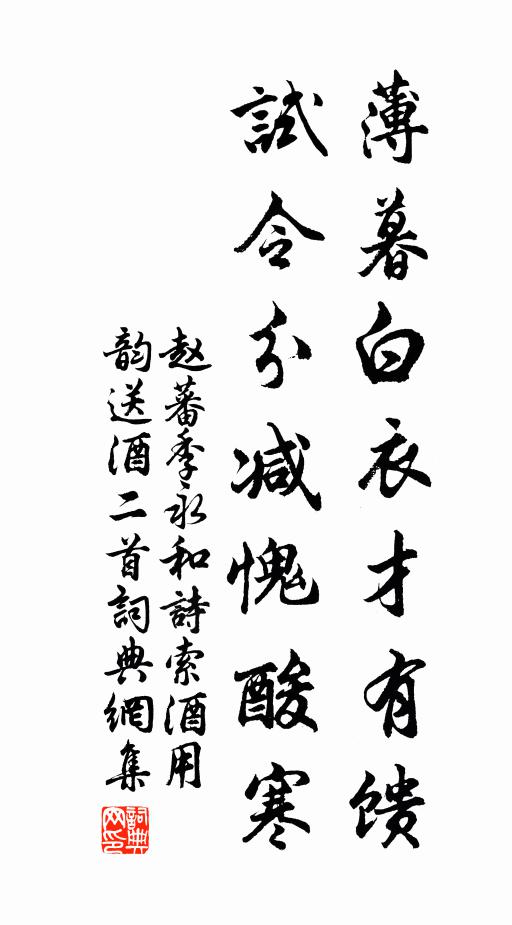 薄暮白衣才有馈
試令分减愧酸寒
赵蕃季永和詩索酒用
韵送酒二首詞典網集
詞典網印